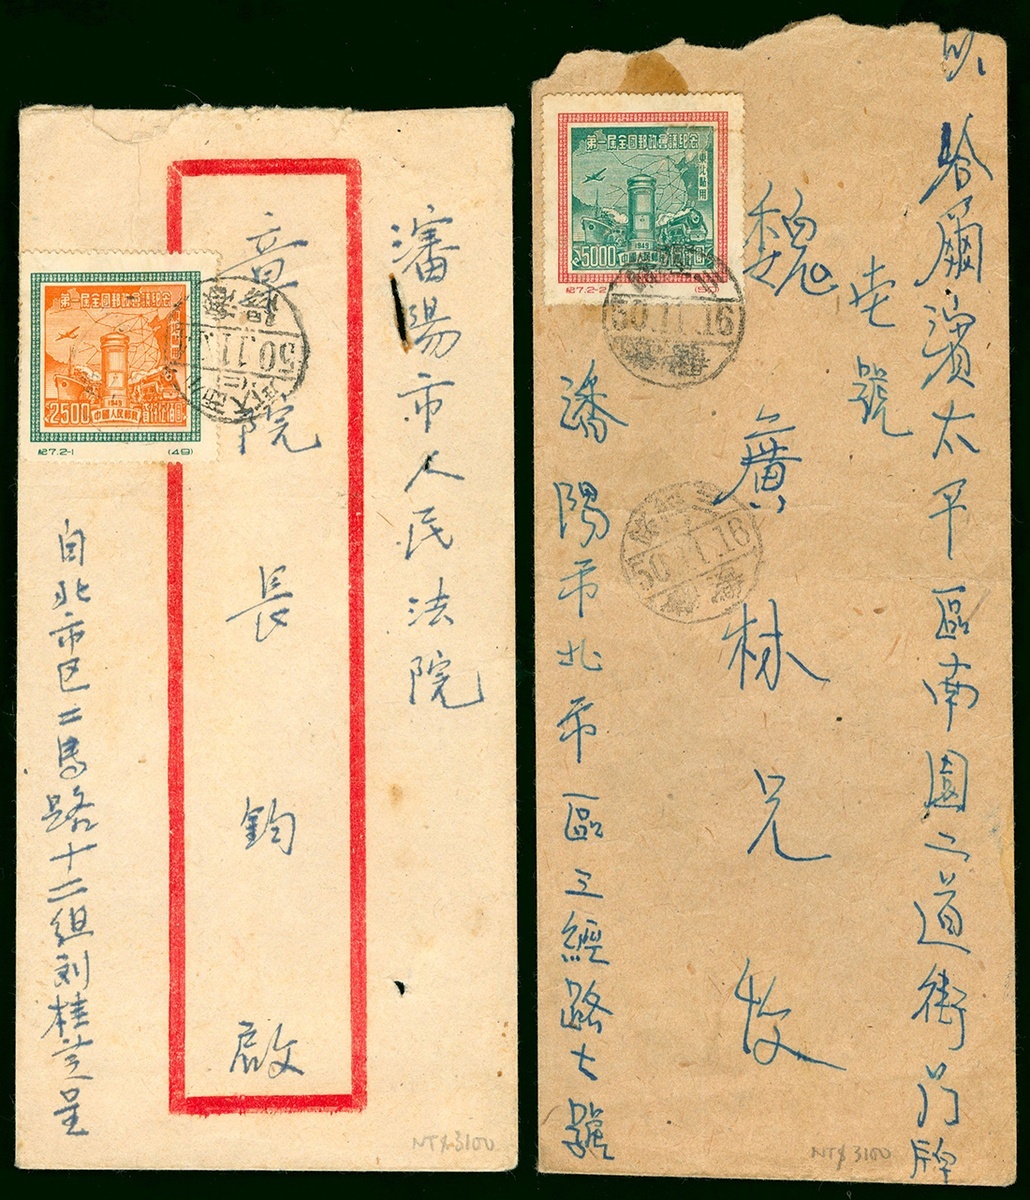 瀋陽市人民法院
章院長鈞啟
自北市区二馬路十二組刘桂芝呈
第一屆全國郵政會議紀念
1949
2500
中國人民郵政
紀27.2-1
(49)
50.11.
NT$3100
哈爾濱太平區南園二道街门牌
號
魏廣林兄收
瀋陽市北市區三經路七號
第一屆全國郵政會議紀念
東北貼用
1949
5000
中國人民郵政
紀27.2-2
50.11.16
50.11.16
NT$3100